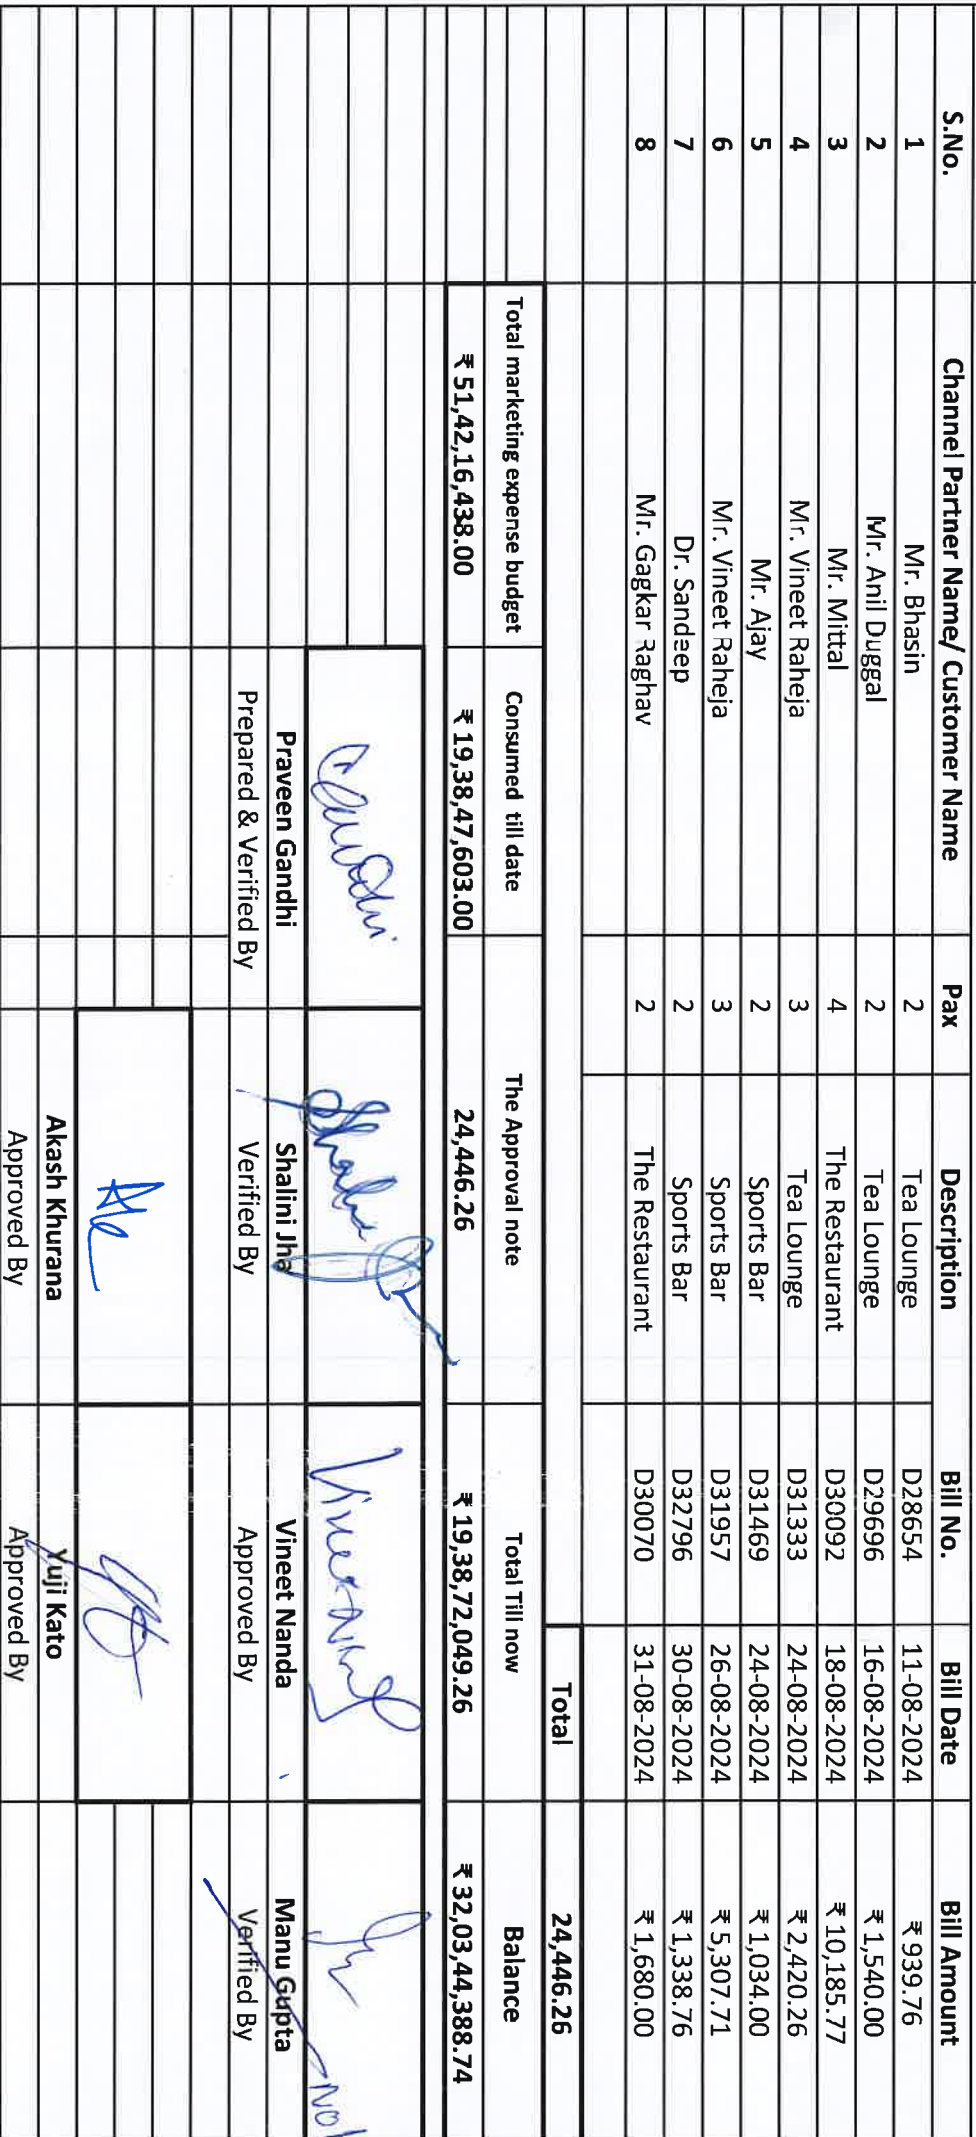 S.No. Channel Partner Name/ Customer Name Pax Description Bill No. Bill Date Bill Amount
1 Mr. Bhasin 2 Tea Lounge D28654 11-08-2024 ₹ 939.76
2 Mr. Anil Duggal 2 Tea Lounge D29696 16-08-2024 ₹ 1,540.00
3 Mr. Mittal 4 The Restaurant D30092 18-08-2024 ₹ 10,185.77
4 Mr. Vineet Raheja 3 Tea Lounge D31333 24-08-2024 ₹ 2,420.26
5 Mr. Ajay 2 Sports Bar D31469 24-08-2024 ₹ 1,034.00
6 Mr. Vineet Raheja 3 Sports Bar D31957 26-08-2024 ₹ 5,307.71
7 Dr. Sandeep 2 Sports Bar D32796 30-08-2024 ₹ 1,338.76
8 Mr. Gagkar Raghav 2 The Restaurant D30070 31-08-2024 ₹ 1,680.00
Total 24,446.26
Total marketing expense budget Consumed till date The Approval note Total Till now Balance
₹ 51,42,16,438.00 ₹ 19,38,47,603.00 24,446.26 ₹ 19,38,72,049.26 ₹ 32,03,44,388.74
Praveen Gandhi Shalini Jha Vineet Nanda Manu Gupta
Prepared & Verified By Verified By Approved By Verified By
Akash Khurana Yuji Kato
Approved By Approved By